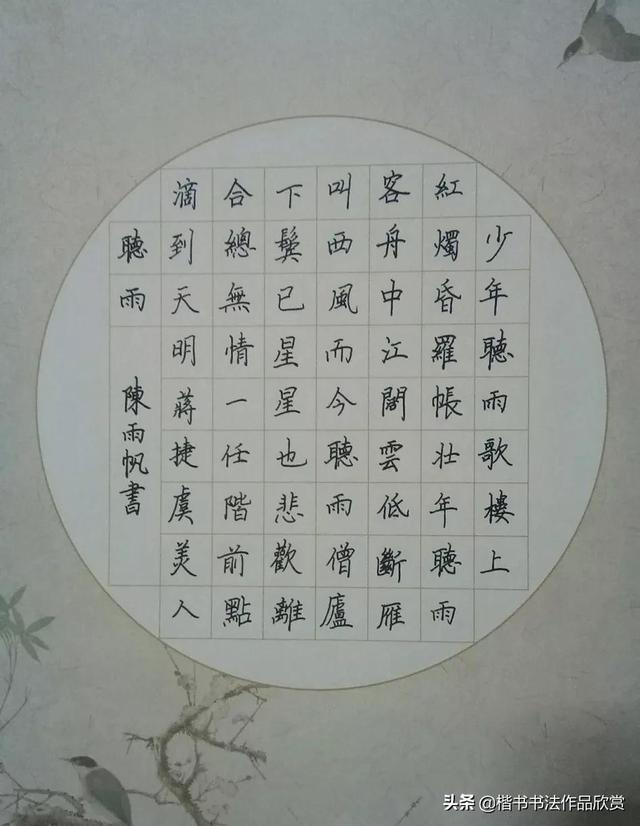 少年聽雨歌樓上
紅燭昏羅帳壯年聽雨
客舟中江闊雲低斷雁
叫西風而今聽雨僧廬
下鬓已星星也悲歡離
合總無情一任階前點
滴到天明蔣捷虞美人
聽雨
陳雨帆書
头条 @楷书书法作品欣赏